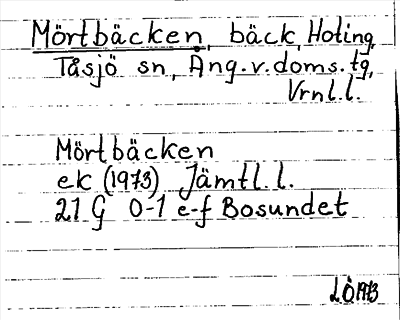 Mörtbäcken, bäck, Hoting,
Tåsjö sn, Ång.v.doms.tg,
Vrnl.l.
Mörtbäcken
ek (1973) Jämtl.l.
21 G 0-1 e-f Bosundet
LÖ 1973